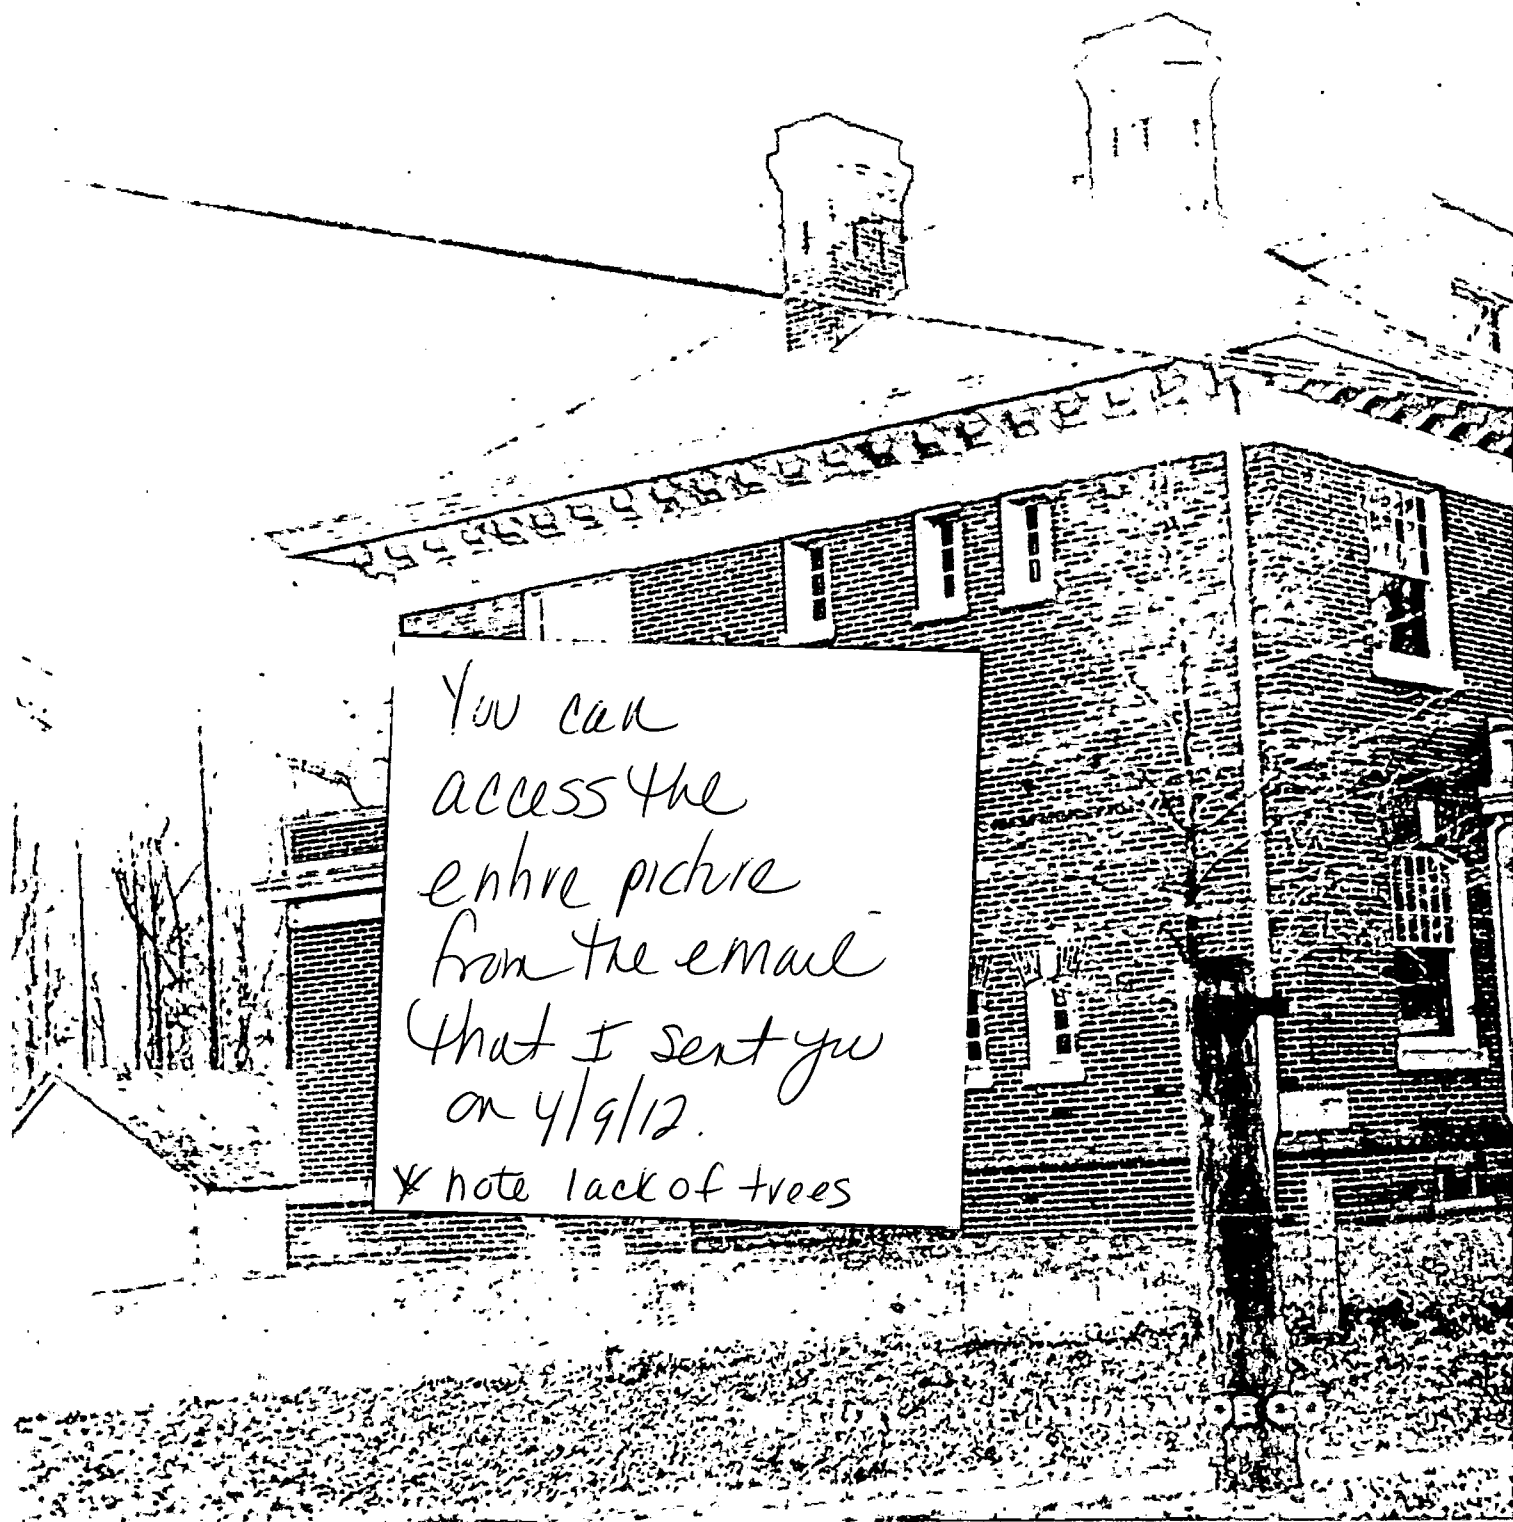 You can
access the
entire picture
from the email
that I sent you
on 4/9/12.
* note lack of trees